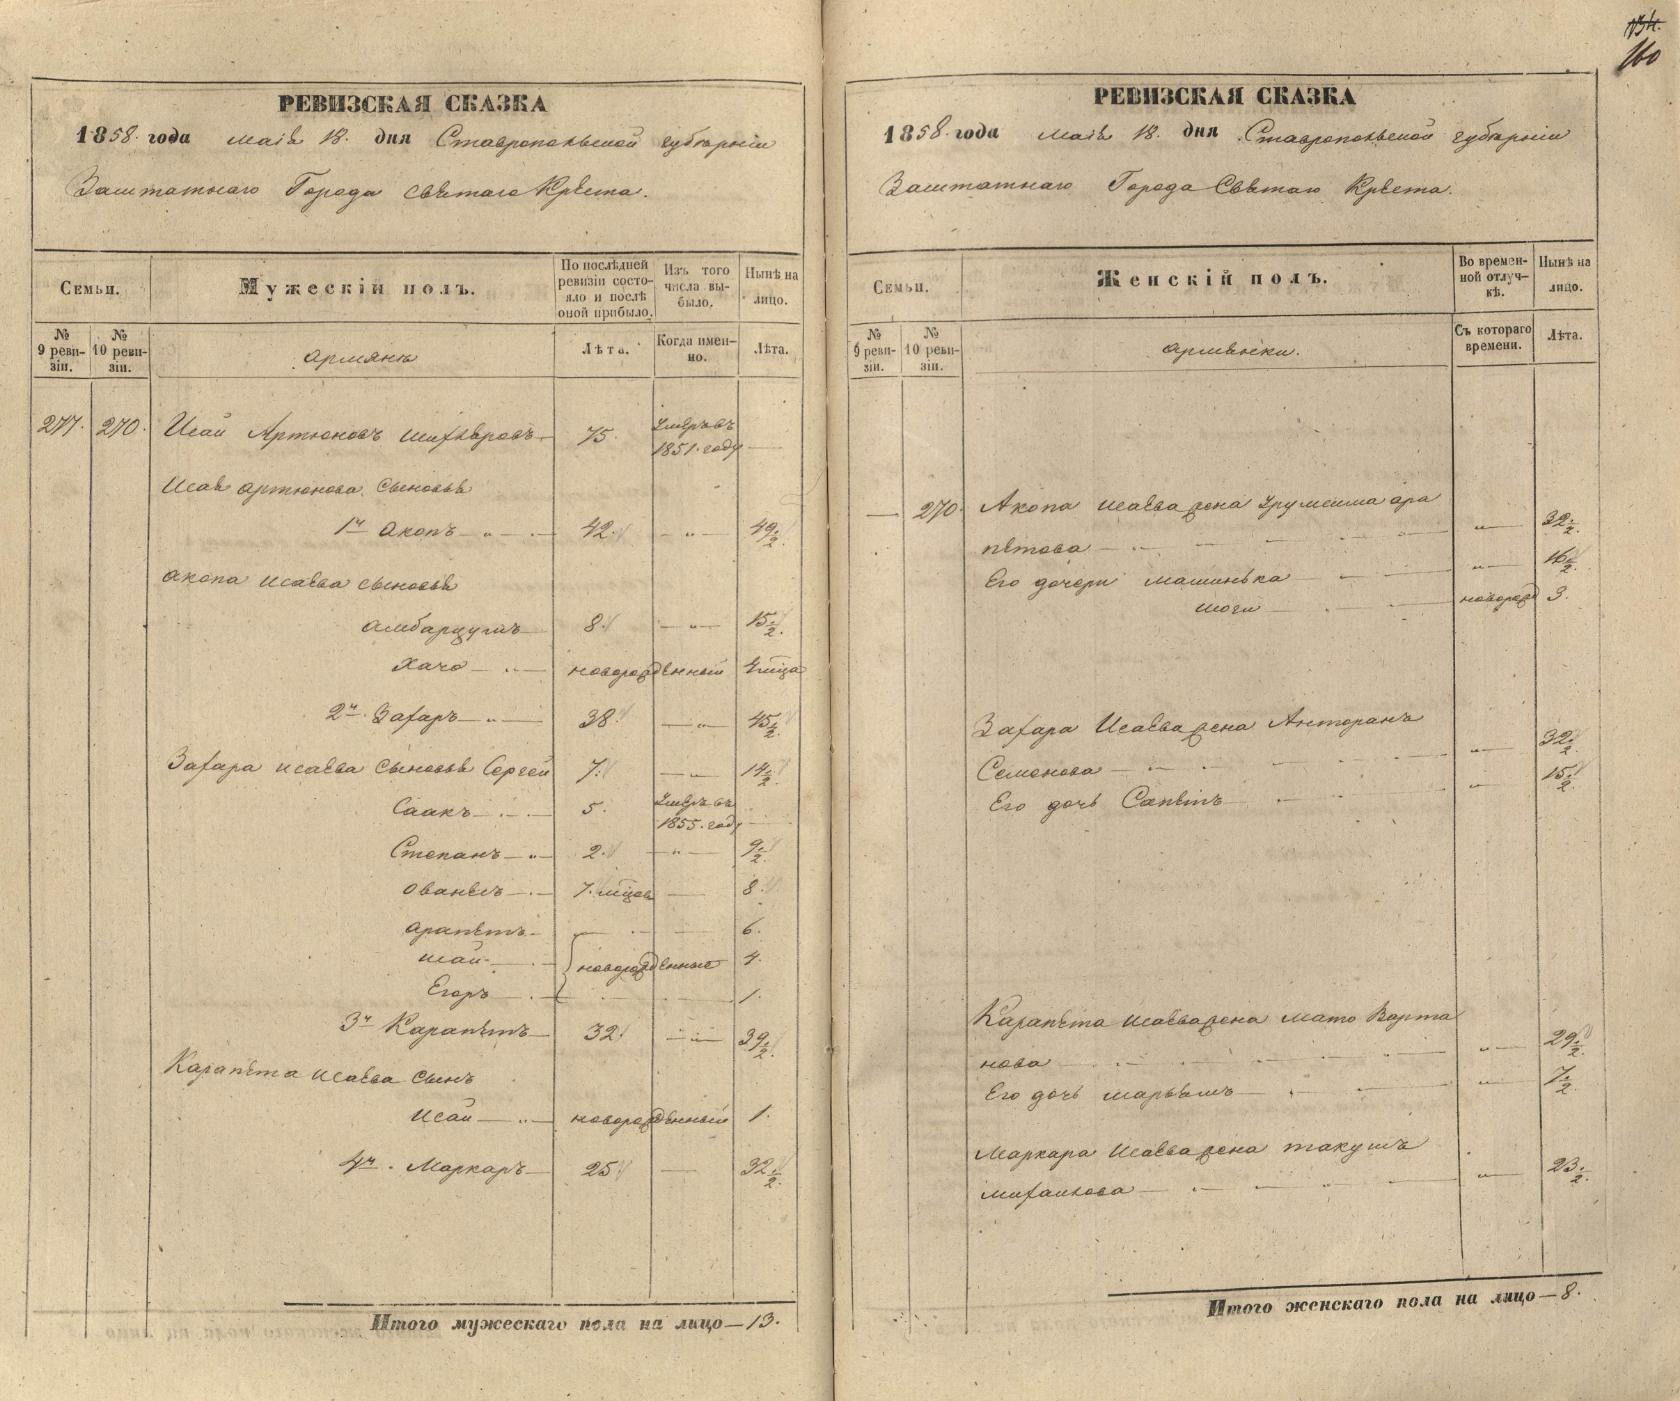 РЕВИЗСКАЯ СКАЗКА
1858. года маія 18. дня Ставропольской губерніи
Заштатнаго Города святаго Креста.
Семьи.
Мужескій полъ.
По послѣдней ревизіи состояло и послѣ оной прибыло.
Изъ того числа выбыло.
Нынѣ на лицо.
№ 9 ревизіи.
№ 10 ревизіи.
армянъ
Лѣта.
Когда именно.
Лѣта.
277. 270. Исай Артюновъ 75. умеръ въ 1851. году
Исая артюнова сыновья
1й акопъ 42. 49 1/2.
акопа исаева сыновья
амбарцумъ 8. 15 1/2.
Хачо новорожденный
2й. Захаръ 38. 45 1/2.
Захара исаева сыновья Сергей 7. 14 1/2.
Саакъ 5. умеръ въ 1855. году
Степанъ 2. 9 1/2.
ованесъ 7. мцовъ 8.
арапетъ 6.
исай новорожденные 4.
Егоръ 1.
3й Карапетъ 32. 39 1/2.
Карапета исаева сынъ
Исай новорожденный 1.
4й. Маркаръ 25 32 1/2.
Итого мужескаго пола на лицо—13.
134.
160
РЕВИЗСКАЯ СКАЗКА
1858. года маія 18. дня Ставропольской губерніи
Заштатнаго Города Святаго Креста.
Семьи.
Женскій полъ.
Во временной отлучкѣ.
Нынѣ на лицо.
№ 9 ревизіи.
№ 10 ревизіи.
армянки.
Съ котораго времени.
Лѣта.
270. Акопа исаева жена ара
петова 32 1/2.
Его дочери машинька 16 1/2.
новорожд 3.
Захара Исаева жена
Семенова 32 1/2.
Его дочь Сапетъ 15 1/2.
Карапета исаева жена мато Варта
нова 29 1/2.
Его дочь марьямъ 7 1/2
Маркара Исаева жена такушъ
михайлова 23 1/2.
Итого женскаго пола на лицо—8.